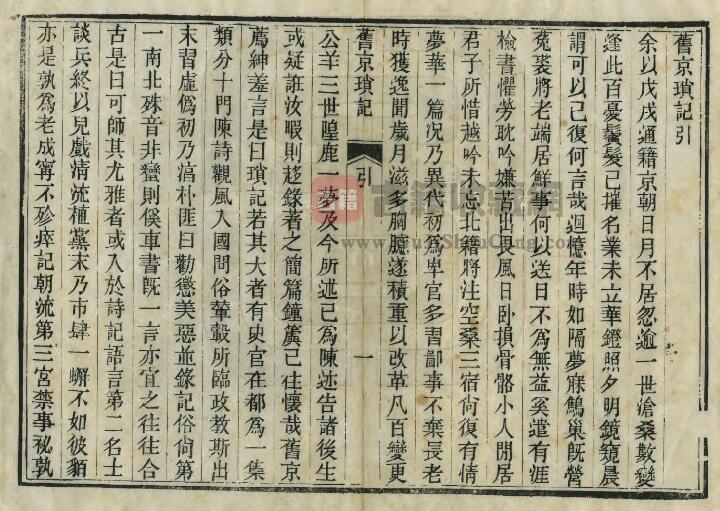 舊京瑣記引
余以戊戌通籍京朝日月不居忽逾一世滄桑數變
逢此百憂鬢髮已摧名業未立華鐙照夕明鏡窺晨
謂可以已復何言哉迴憶年時如隔夢寐鷦巢旣營
菟裘將老端居鮮事何以送日不爲無益奚遣有涯
檢書懼勞耽吟嫌苦出畏風日臥損骨骼小人閒居
君子所惜越吟未忘北籍將注空桑三宿尙復有情
夢華一篇況乃異代初爲卑官多習鄙事不棄長老
時獲逸聞歲月滋多胸臆遂積重以改革凡百變更
舊京瑣記 引 一
公羊三世隍鹿一夢及今所述已爲陳迹告諸後生
或疑誰汝暇則迻錄著之簡篇鐘簴已往懷哉舊京
薦紳羞言是曰瑣記若其大者有史官在都爲一集
類分十門陳詩觀風入國問俗輦轂所臨政教斯出
末習虛僞初乃渰朴匪曰勸懲美惡並錄記俗尙第
一南北殊音非蠻則傒車書旣一言亦宜之往往合
古是曰可師其尤雅者或入於詩記語言第二名士
談兵終以兒戲淸流植黨末乃市肆一蠏不如彼貊
亦是孰爲老成寧不殄瘁記朝流第三宮禁事祕孰